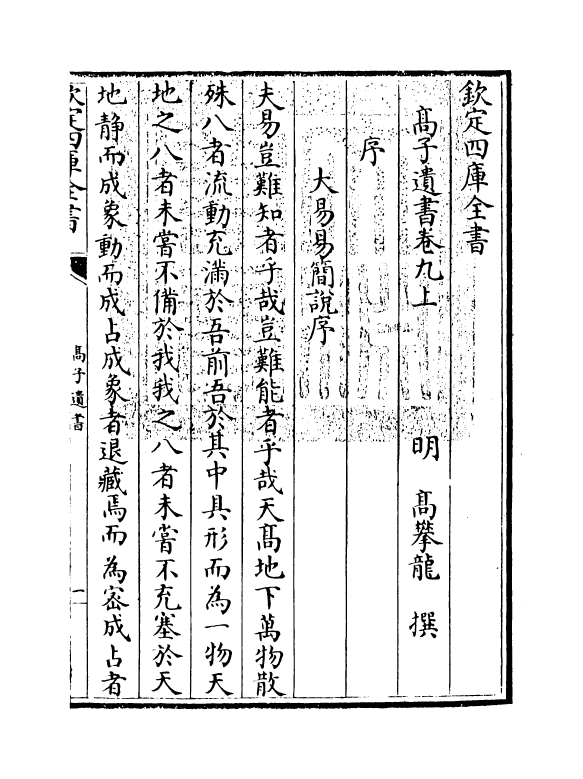 欽定四庫全書
髙子遺書卷九上
明 髙攀龍 撰
序
大易易簡說序
夫易豈難知者乎哉豈難能者乎哉天髙地下萬物散
殊八者流動充滿於吾前吾於其中具形而為一物天
地之八者未嘗不備於我我之八者未嘗不充塞於天
地靜而成象動而成占成象者退藏焉而為宻成占者
欽定四庫全書
髙子遺書
一